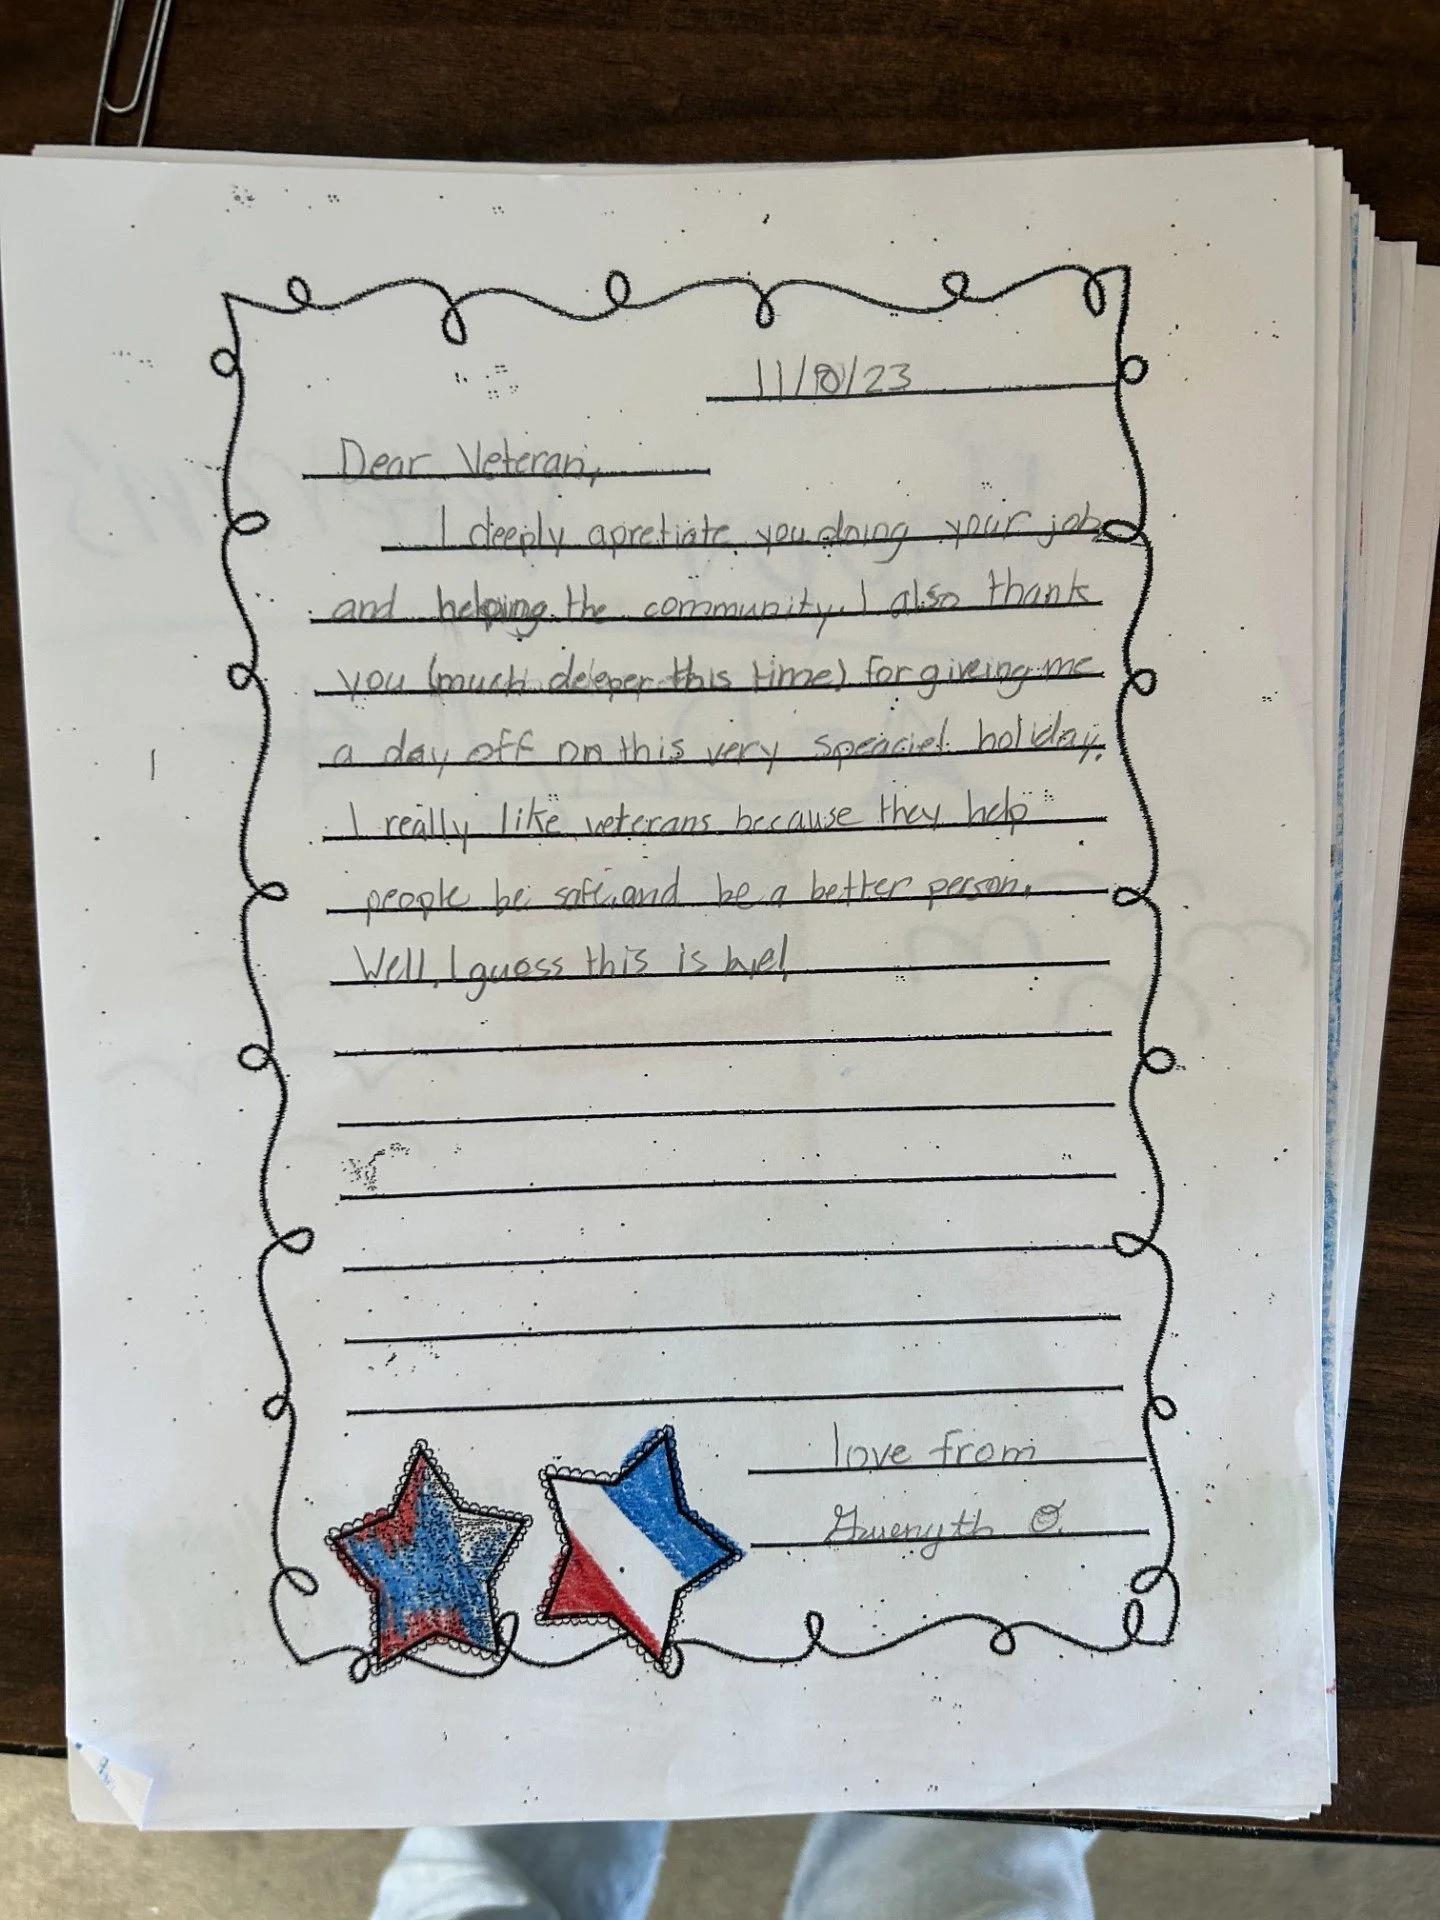 11/10/23
Dear Veteran,
I deeply apretiate you doing your job
and helping the community. I also thank
you (much deeper this time) for giveing me
a day off on this very speaciel holiday.
I really like veterans because they help
people be safe and be a better person.
Well, I guess this is bye!
love from
Gwenyth O.